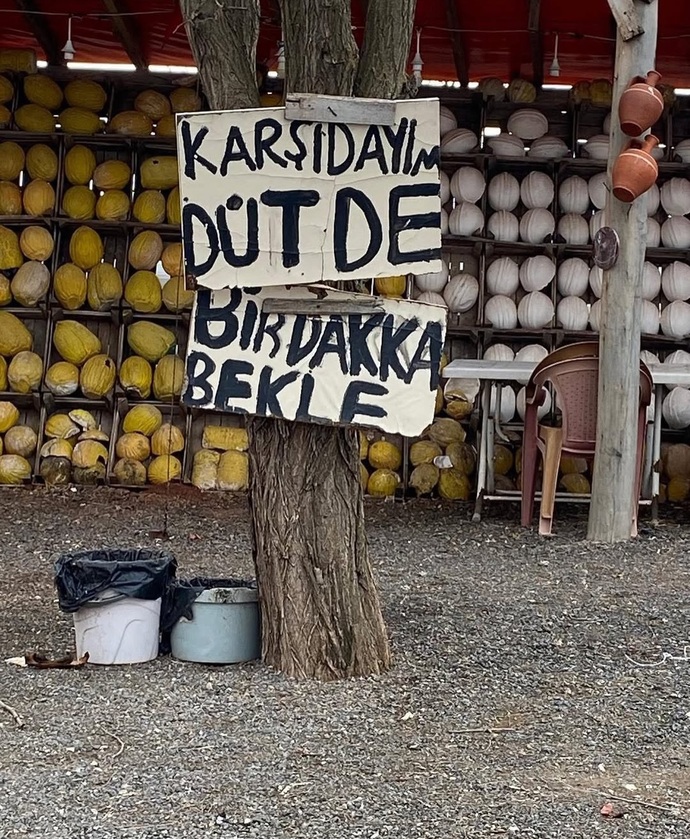 KARŞIDAYIM
DÜT DE
BİR DAKKA
BEKLE